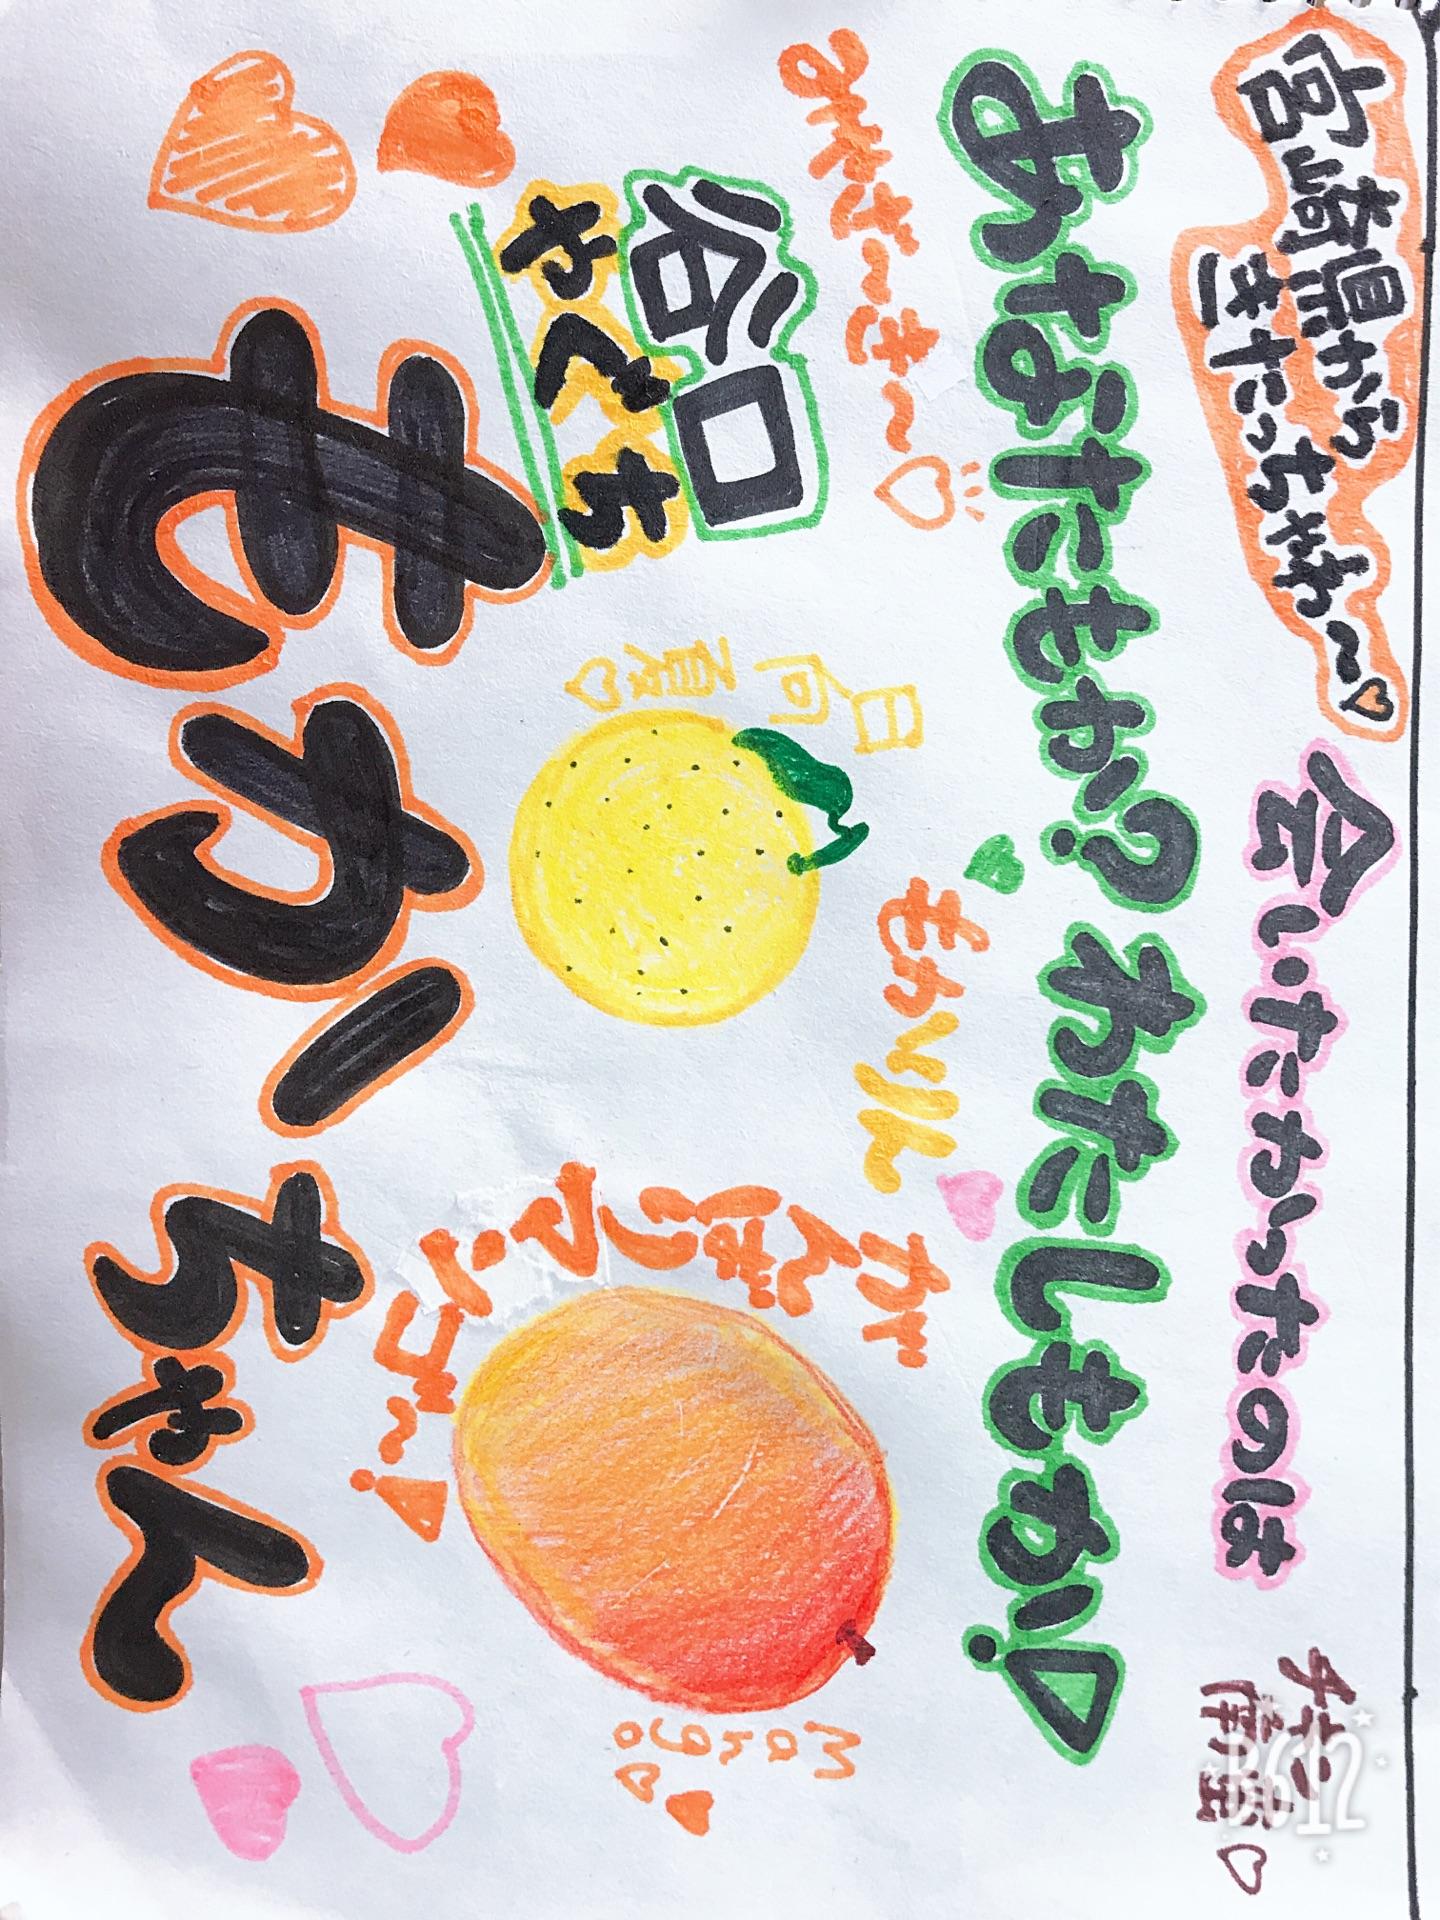 宮崎県から
きたっちゃわ〜♡
会いたかったのは
あなたもか?わたしもか!
みやざ〜き〜♡
もかりん
谷口
やぐち
日向夏♡
がんばりマンゴ〜!
Mango♡♥
もかちゃん
B612